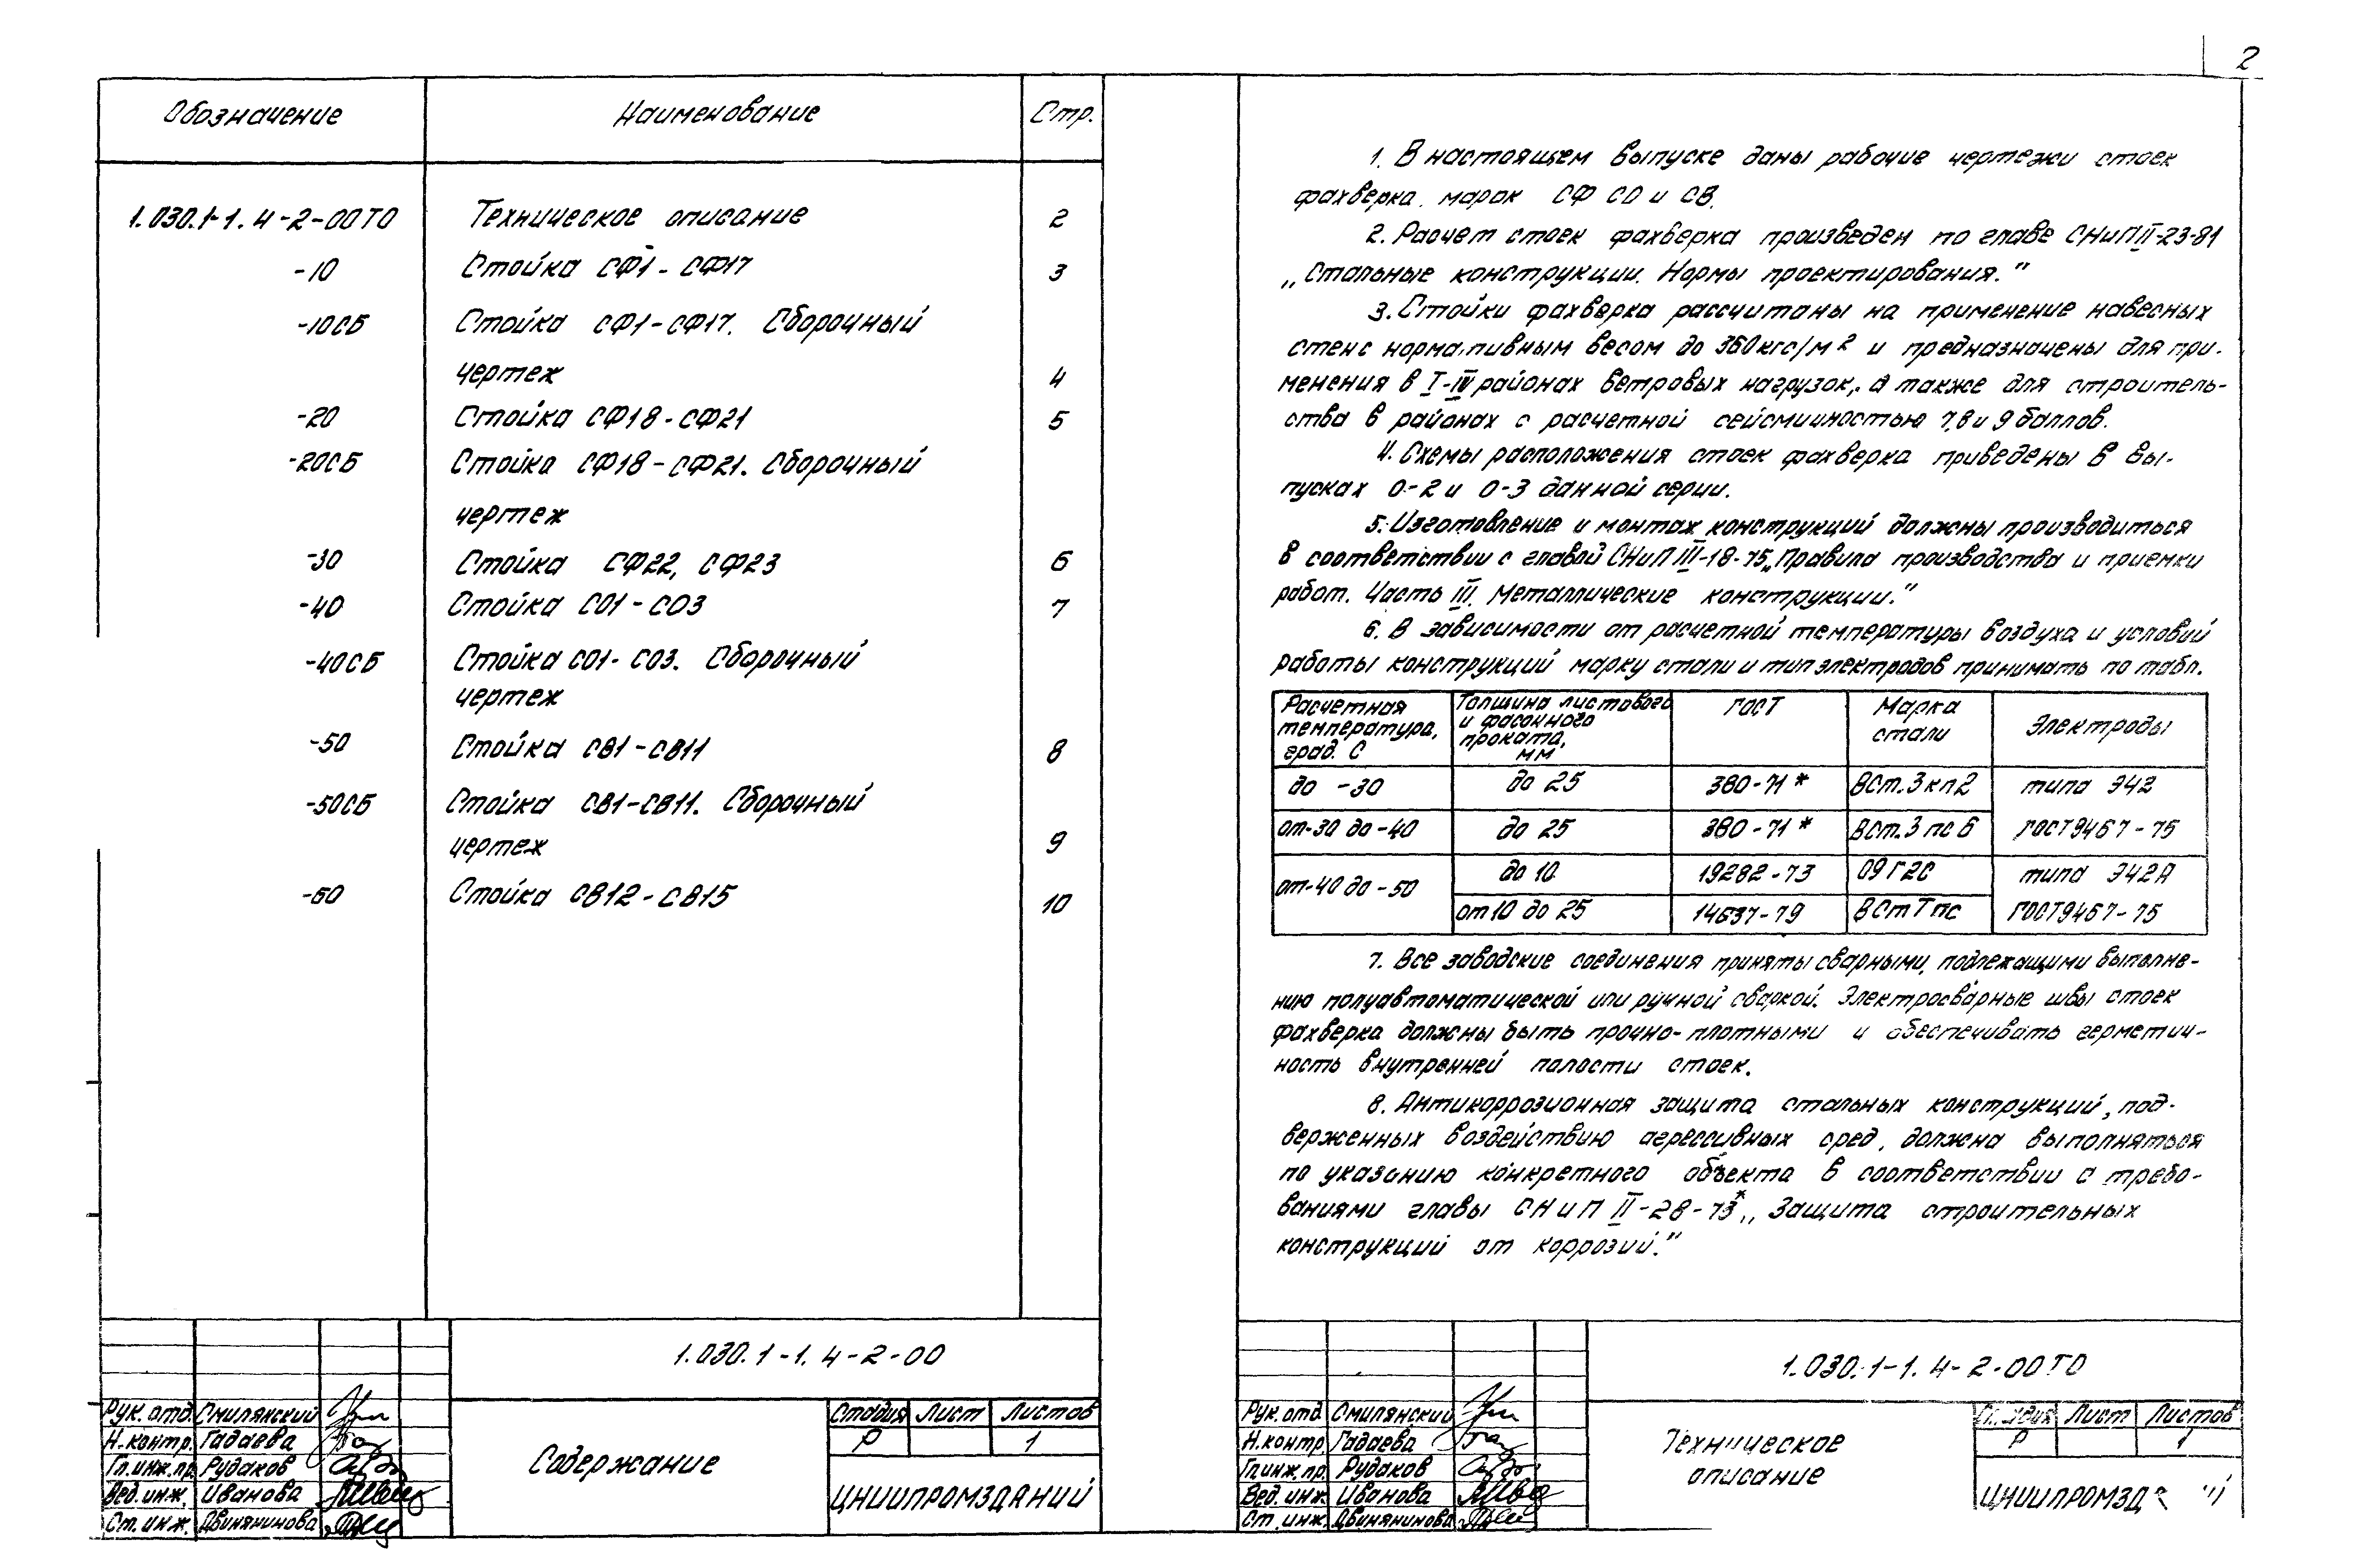 2
Обозначение Наименование Стр.
1.030.1-1.4-2-00ТО Техническое описание 2
-10 Стойка СФ1-СФ17 3
-10СБ Стойка СФ1-СФ17. Сборочный
чертеж 4
-20 Стойка СФ18-СФ21 5
-20СБ Стойка СФ18-СФ21. Сборочный
чертеж
-30 Стойка СФ22, СФ23 6
-40 Стойка СО1-СО3 7
-40СБ Стойка СО1-СО3. Сборочный
чертеж
-50 Стойка СВ1-СВ11 8
-50СБ Стойка СВ1-СВ11. Сборочный
чертеж 9
-60 Стойка СВ12-СВ15 10
1.030.1-1.4-2-00
Рук. отд. Смилянский
Н.контр. Гадаева
Гл.инж.пр. Рудаков
Вед. инж. Иванова
Ст. инж. Двинянинова
Содержание
Стадия Лист Листов
Р 1
ЦНИИПРОМЗДАНИЙ
1. В настоящем выпуске даны рабочие чертежи стоек
фахверка марок СФ СО и СВ.
2. Расчет стоек фахверка произведен по главе СНиП II-23-81
„Стальные конструкции. Нормы проектирования."
3. Стойки фахверка рассчитаны на применение навесных
стен с нормативным весом до 360 кгс/м² и предназначены для при-
менения в I-IV районах ветровых нагрузок, а также для строитель-
ства в районах с расчетной сейсмичностью 7,8 и 9 баллов.
4. Схемы расположения стоек фахверка приведены в вы-
пусках 0-2 и 0-3 данной серии.
5. Изготовление и монтаж конструкций должны производиться
в соответствии с главой СНиП III-18-75 „Правила производства и приемки
работ. Часть III. Металлические конструкции."
6. В зависимости от расчетной температуры воздуха и условий
работы конструкций марку стали и тип электродов принимать по табл.
Расчетная температура, град. С Толщина листового и фасонного проката, мм ГОСТ Марка стали Электроды
до -30 до 25 380-71* ВСт.3кп2 типа Э42
от-30 до-40 до 25 380-71* ВСт.3пс6 ГОСТ9467-75
от-40 до-50 до 10 19282-73 09Г2С типа Э42А
от 10 до 25 14637-79 ВСтТпс ГОСТ9467-75
7. Все заводские соединения приняты сварными, подлежащими выполне-
нию полуавтоматической или ручной сваркой. Электросварные швы стоек
фахверка должны быть прочно-плотными и обеспечивать герметич-
ность внутренней полости стоек.
8. Антикоррозионная защита стальных конструкций, под-
верженных воздействию агрессивных сред, должна выполняться
по указанию конкретного объекта в соответствии с требо-
ваниями главы СНиП II-28-73* „Защита строительных
конструкций от коррозий."
1.030.1-1.4-2-00ТО
Рук. отд. Смилянский
Н.контр. Гадаева
Гл.инж.пр. Рудаков
Вед. инж. Иванова
Ст. инж. Двинянинова
Техническое
описание
Стадия Лист Листов
Р 1